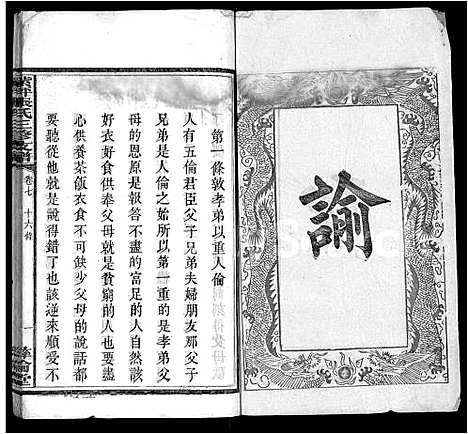 諭
第一條敦孝弟以重人倫
人有五倫君臣父子兄弟夫婦朋友那父子
兄弟是人倫之始所以第一重的是孝弟父
母的恩原是報答不盡的有父母的人自然該
好好食供奉父母就是貧窮的人也要盡
心供養茶飯衣食不可缺少父母的說話都
要聽從他就是說得錯了也不該逆來順受不
張氏三修支譜
卷七
十六首
一